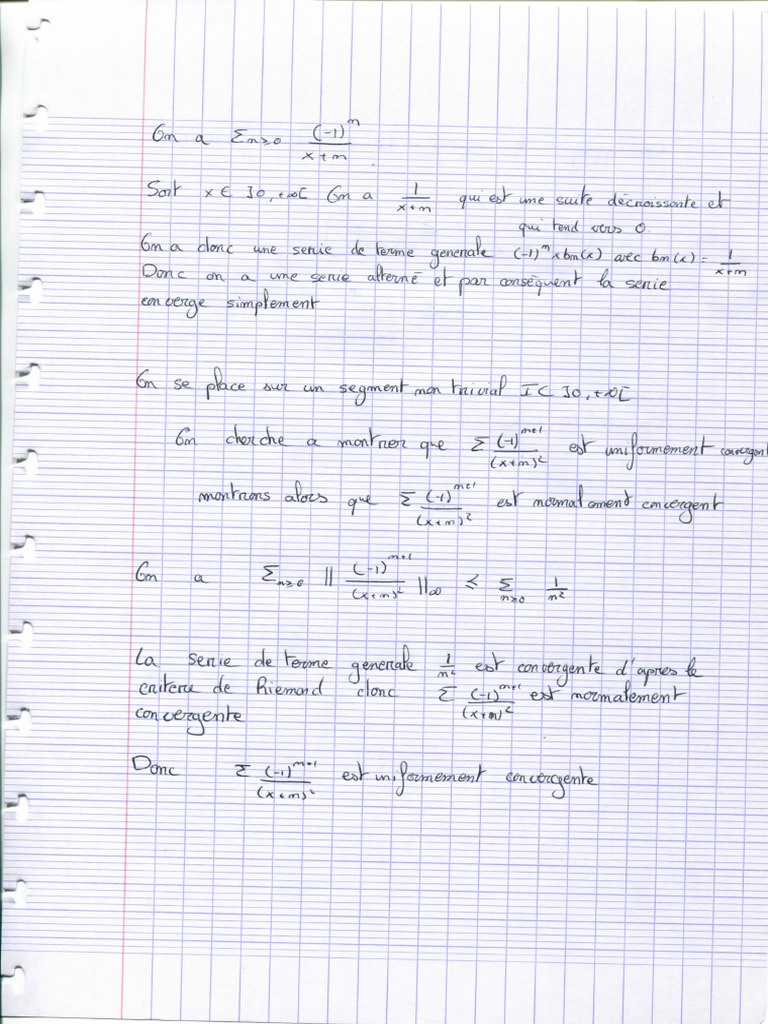 On a Σn≥0 (-1)^n / (x+n)
Soit x ∈ ]0,+∞[ On a 1/(x+n) qui est une suite décroissante et
qui tend vers 0.
On a donc une serie de terme generale (-1)^n × bn(x) avec bn(x) = 1/(x+n)
Donc on a une serie alterné et par conséquent la serie
converge simplement
On se place sur un segment non trivial I ⊂ ]0,+∞[
On cherche a montrer que Σ (-1)^(n+1) / (x+n)² est uniformement convergent
montrons alors que Σ (-1)^(n+1) / (x+n)² est normalement convergent
On a Σn≥0 || (-1)^(n+1) / (x+n)² ||∞ ≤ Σn≥0 1/n²
La serie de terme generale 1/n² est convergente d'apres le
critere de Riemand donc Σ (-1)^(n+1) / (x+n)² est normalement
convergente
Donc Σ (-1)^(n+1) / (x+n)² est uniformement convergente